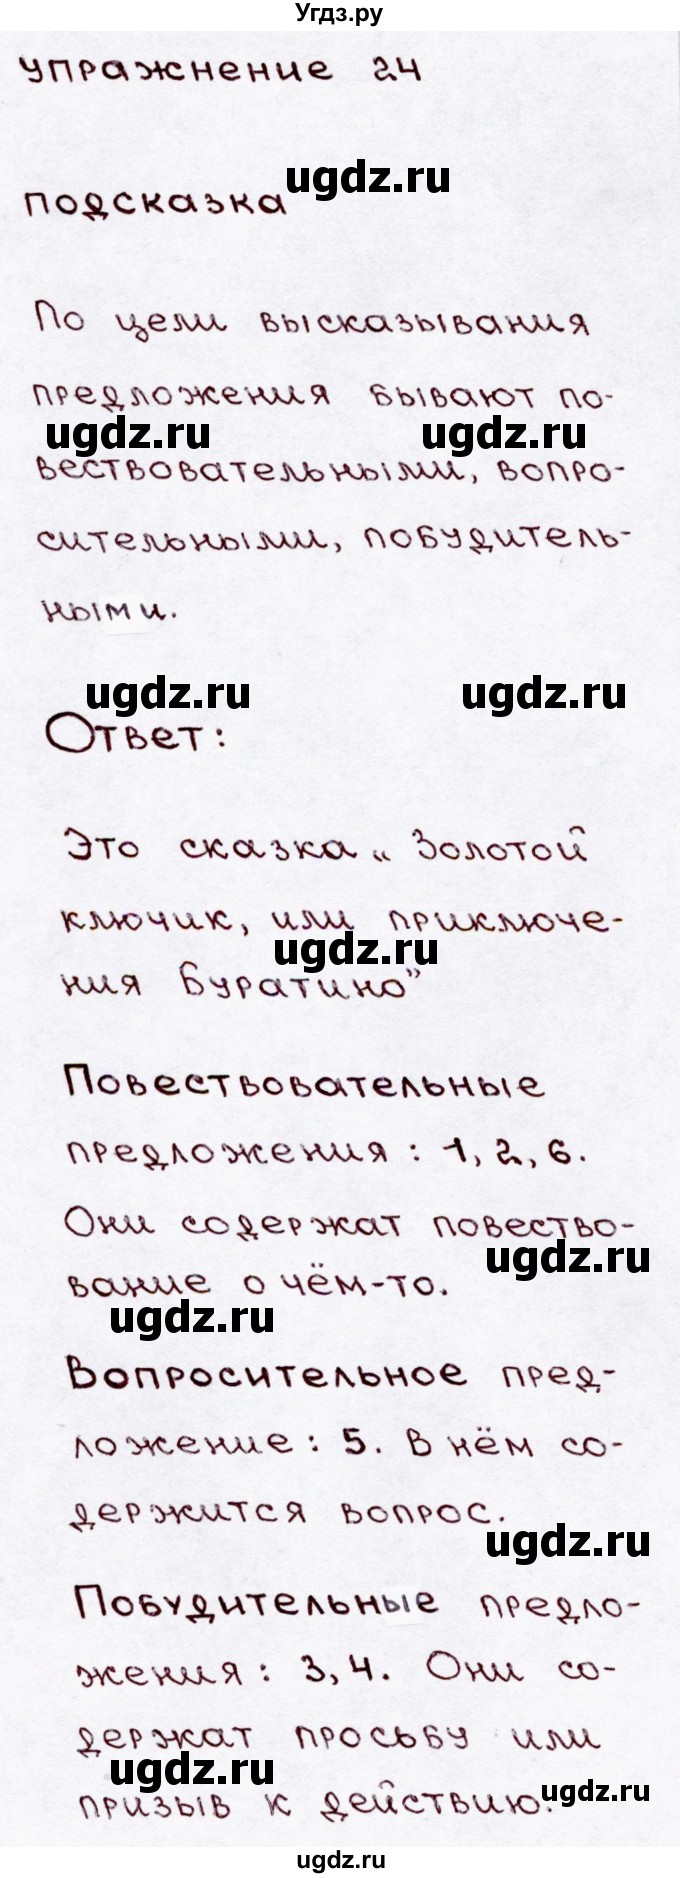 Угдз.ру
упражнение 24
ugdz.ru
подсказка
По цели высказывания
предложения бывают по-
ugdz.ru ugdz.ru
вествовательными, вопро-
сительными, побудитель-
ными.
ugdz.ru ugdz.ru
Ответ:
Это сказка „Золотой
ключик, или приключе-
ugdz.ru
ния Буратино”
Повествовательные
предложения: 1, 2, 6.
Они содержат повество-
ugdz.ru
вание о чём-то.
ugdz.ru
Вопросительное пред-
ложение: 5. В нём со-
держится вопрос.
ugdz.ru
Побудительные предло-
жения: 3, 4. Они со-
держат просьбу или
ugdz.ru
призыв к действию.
ugdz.ru
ugdz.ru